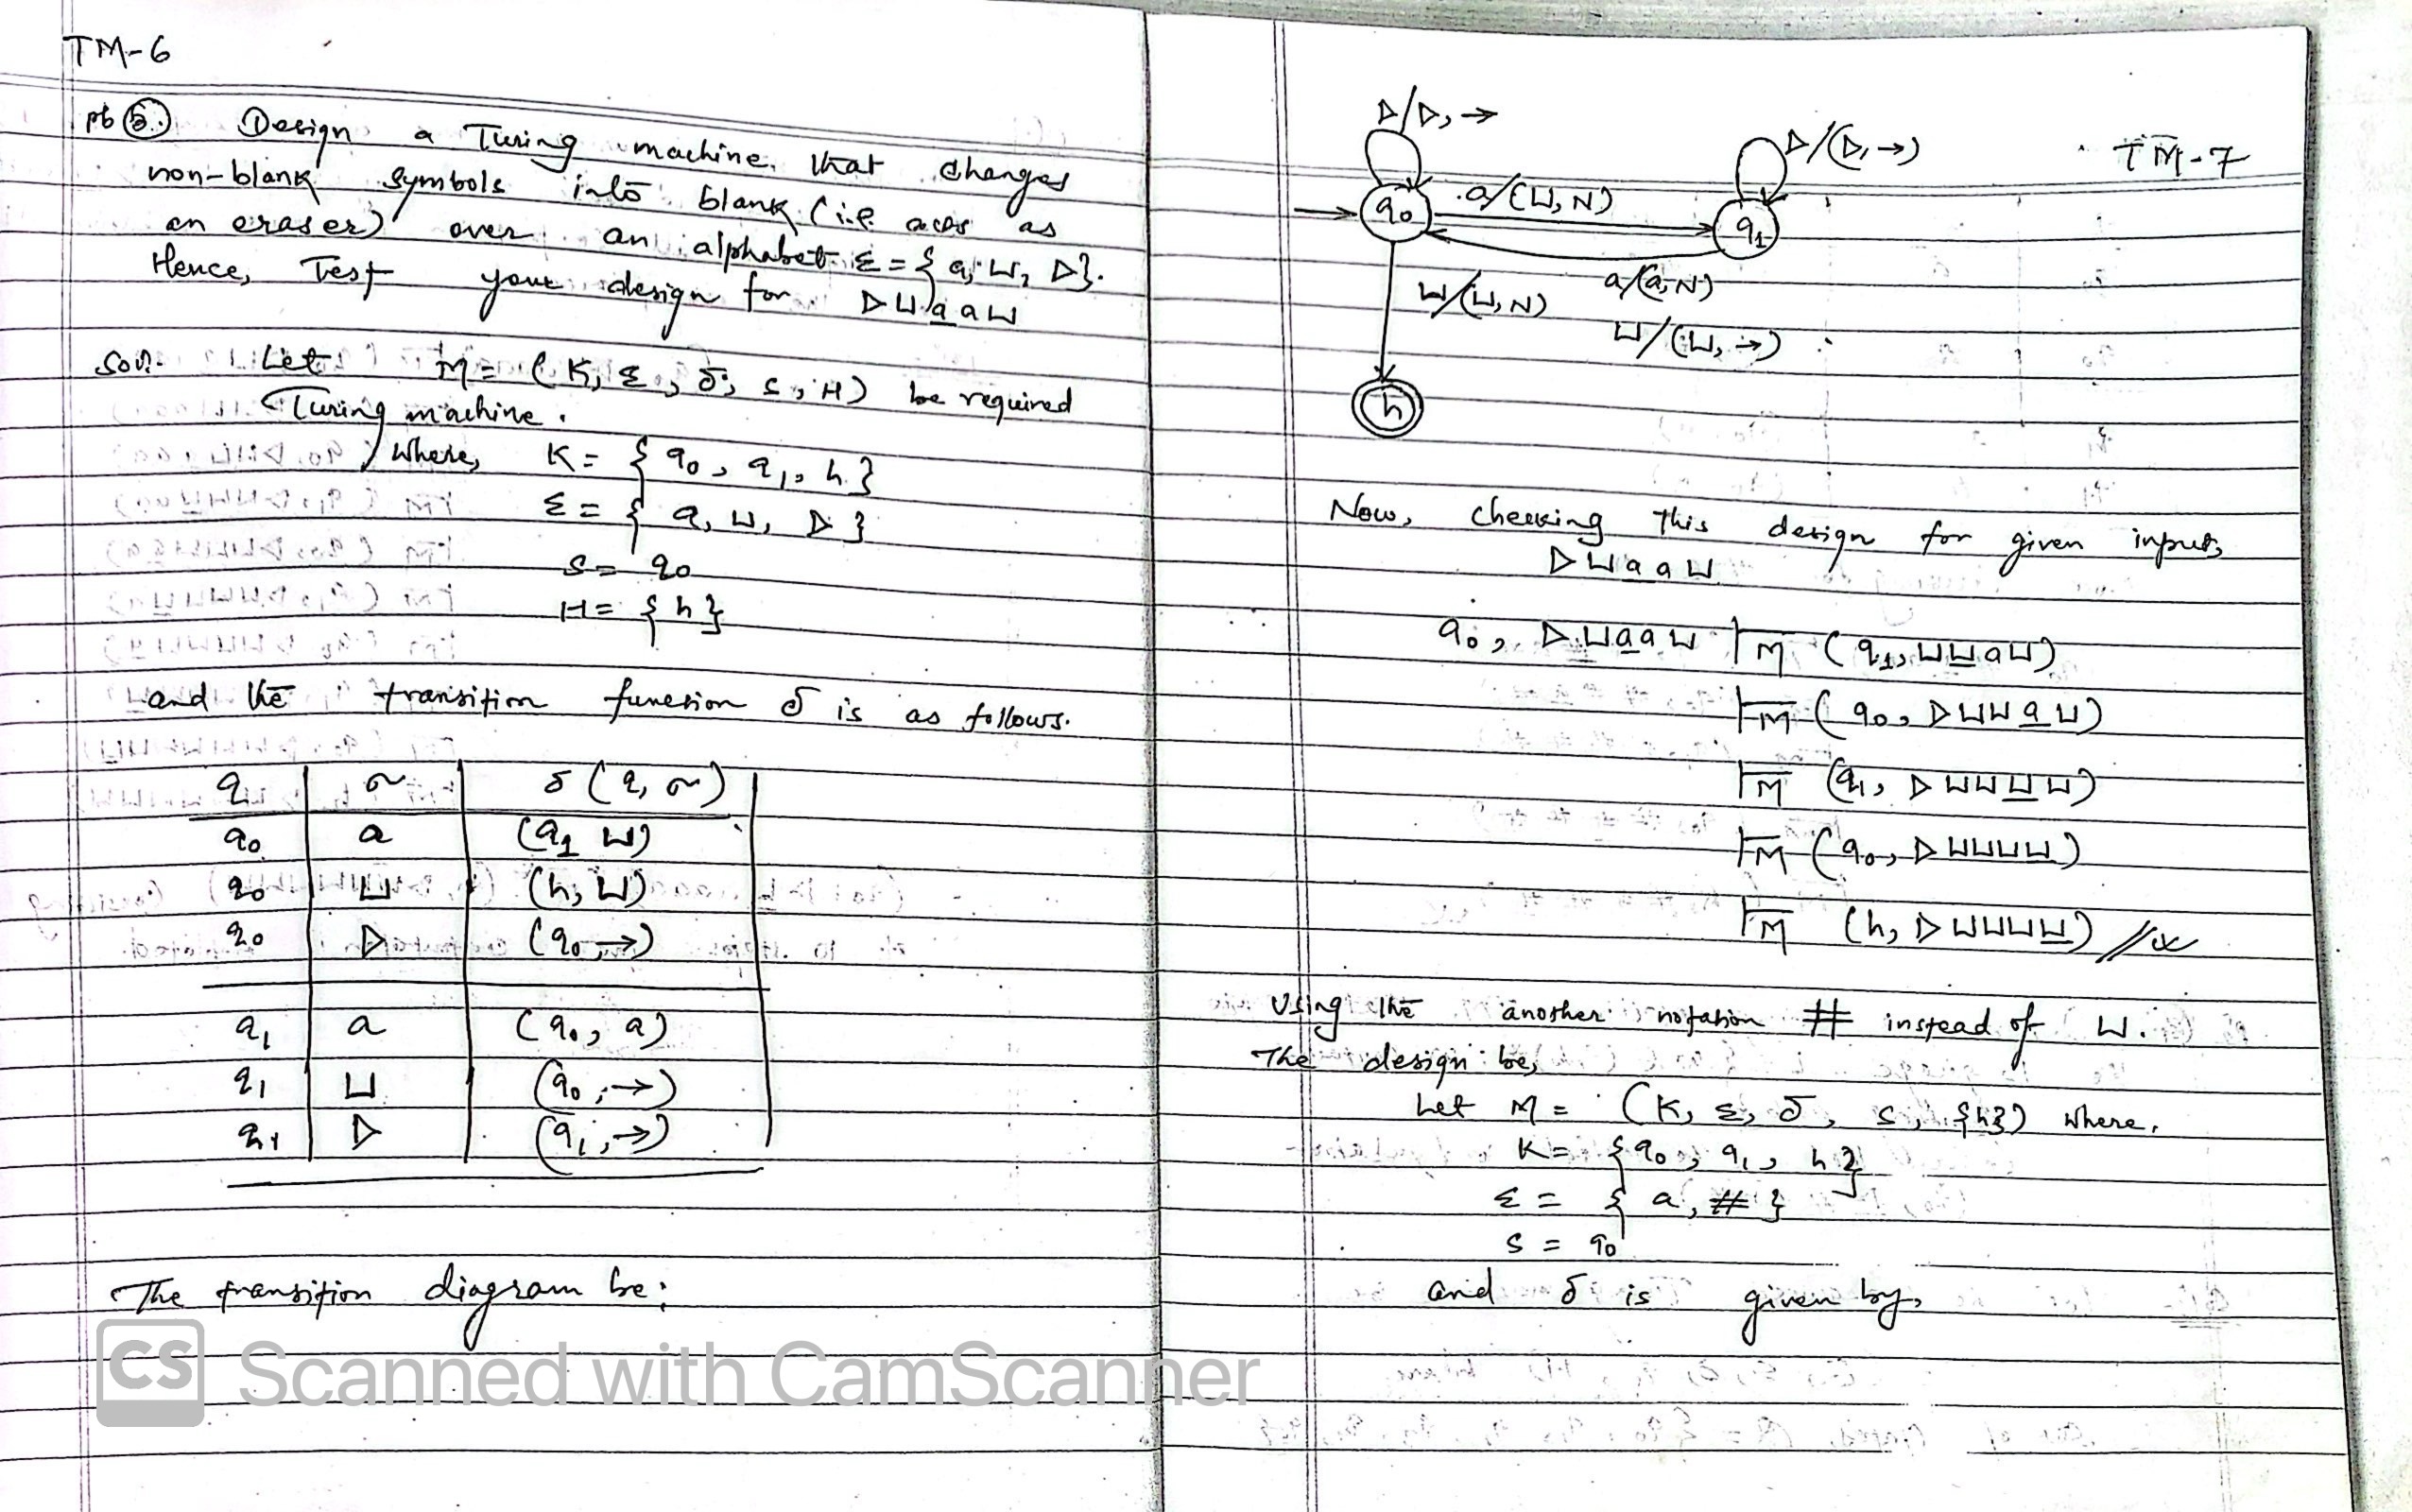 TM-6
pb 5. Design a Turing machine that changes
non-blank symbols into blank (i.e. acts as
an eraser) over an alphabet Σ = { a, ⊔, ▷}.
Hence, Test your design for ▷⊔a̲a⊔
Soln. Let M = (K, Σ, δ, s, H) be required
Turing machine.
Where, K = { q0, q1, h }
Σ = { a, ⊔, ▷ }
S = q0
H = {h}
and the transition function δ is as follows.
q | σ | δ (q, σ)
q0 | a | (q1 ⊔)
q0 | ⊔ | (h, ⊔)
q0 | ▷ | (q0, →)
q1 | a | (q0, a)
q1 | ⊔ | (q0, →)
q1 | ▷ | (q1, →)
The transition diagram be:
CS Scanned with CamScanner
TM-7
▷/▷, →
▷/(▷, →)
a/(⊔, N)
q0
q1
a/(a, N)
⊔/(⊔, N)
⊔/(⊔, →)
h
Now, checking this design for given input,
▷⊔a a⊔
q0, ▷⊔a̲a⊔ ⊢M (q1, ⊔⊔̲a⊔)
⊢M (q0, ▷⊔⊔a̲⊔)
⊢M (q1, ▷⊔⊔⊔̲⊔)
⊢M (q0, ▷⊔⊔⊔⊔)
⊢M (h, ▷⊔⊔⊔⊔̲) //
Using the another notation # instead of ⊔.
The design be,
Let M = (K, Σ, δ, s, {h}) where,
K = {q0, q1, h}
Σ = { a, # }
S = q0
and δ is given by,